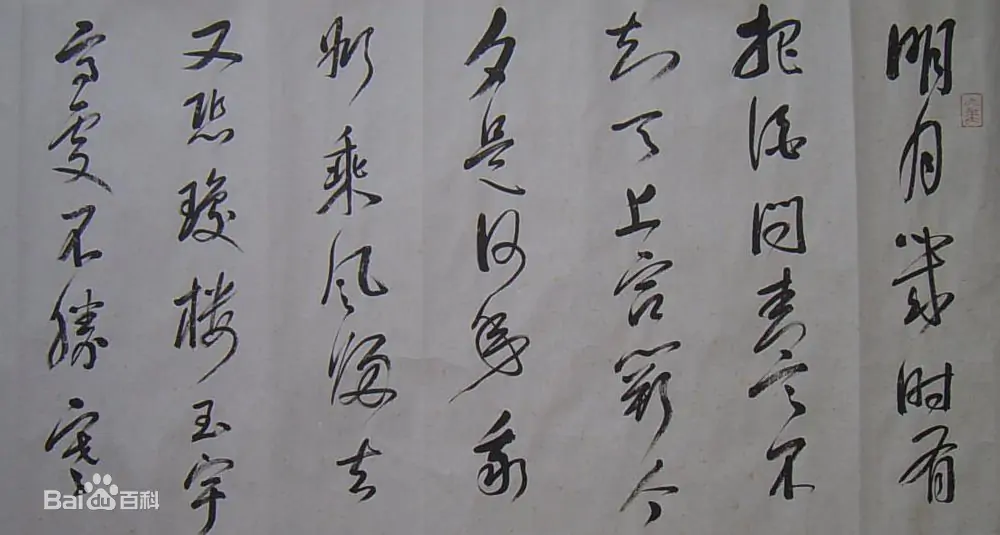 明月幾时有
把酒问青天不
知天上宫阙今
夕是何年我
欲乘风归去
又恐琼楼玉宇
高处不胜寒
Bai du 百科